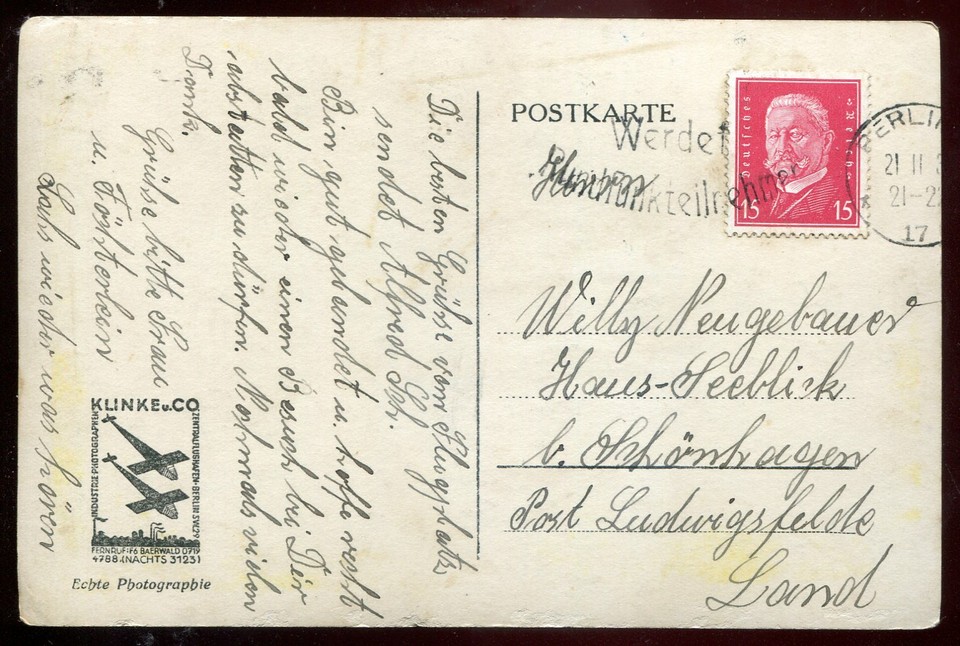 Die besten Grüße vom Flugplatz
sendet Alfred Sch.
Bin gut gelandet u. hoffe recht
bald wieder einen Besuch bei Dir
abstatten zu dürfen. Nochmals vielen
Dank.
Grüße bitte Frau
u. Töchterlein
Laß wieder was hören
KLINKE u. CO
INDUSTRIE-PHOTOGRAPHEN
ZENTRALFLUGHAFEN-BERLIN SW.29
FERNRUF: F6 BAERWALD 0719
4788. (NACHTS 3123)
Echte Photographie
POSTKARTE
Werdet
Rundfunkteilnehmer
Deutsches Reich
15 15
BERLIN
21 11 3
21-22
17
Herrn
Willy Neugebauer
Haus-Seeblick
b. Schönhagen
Post Ludwigsfelde
Land